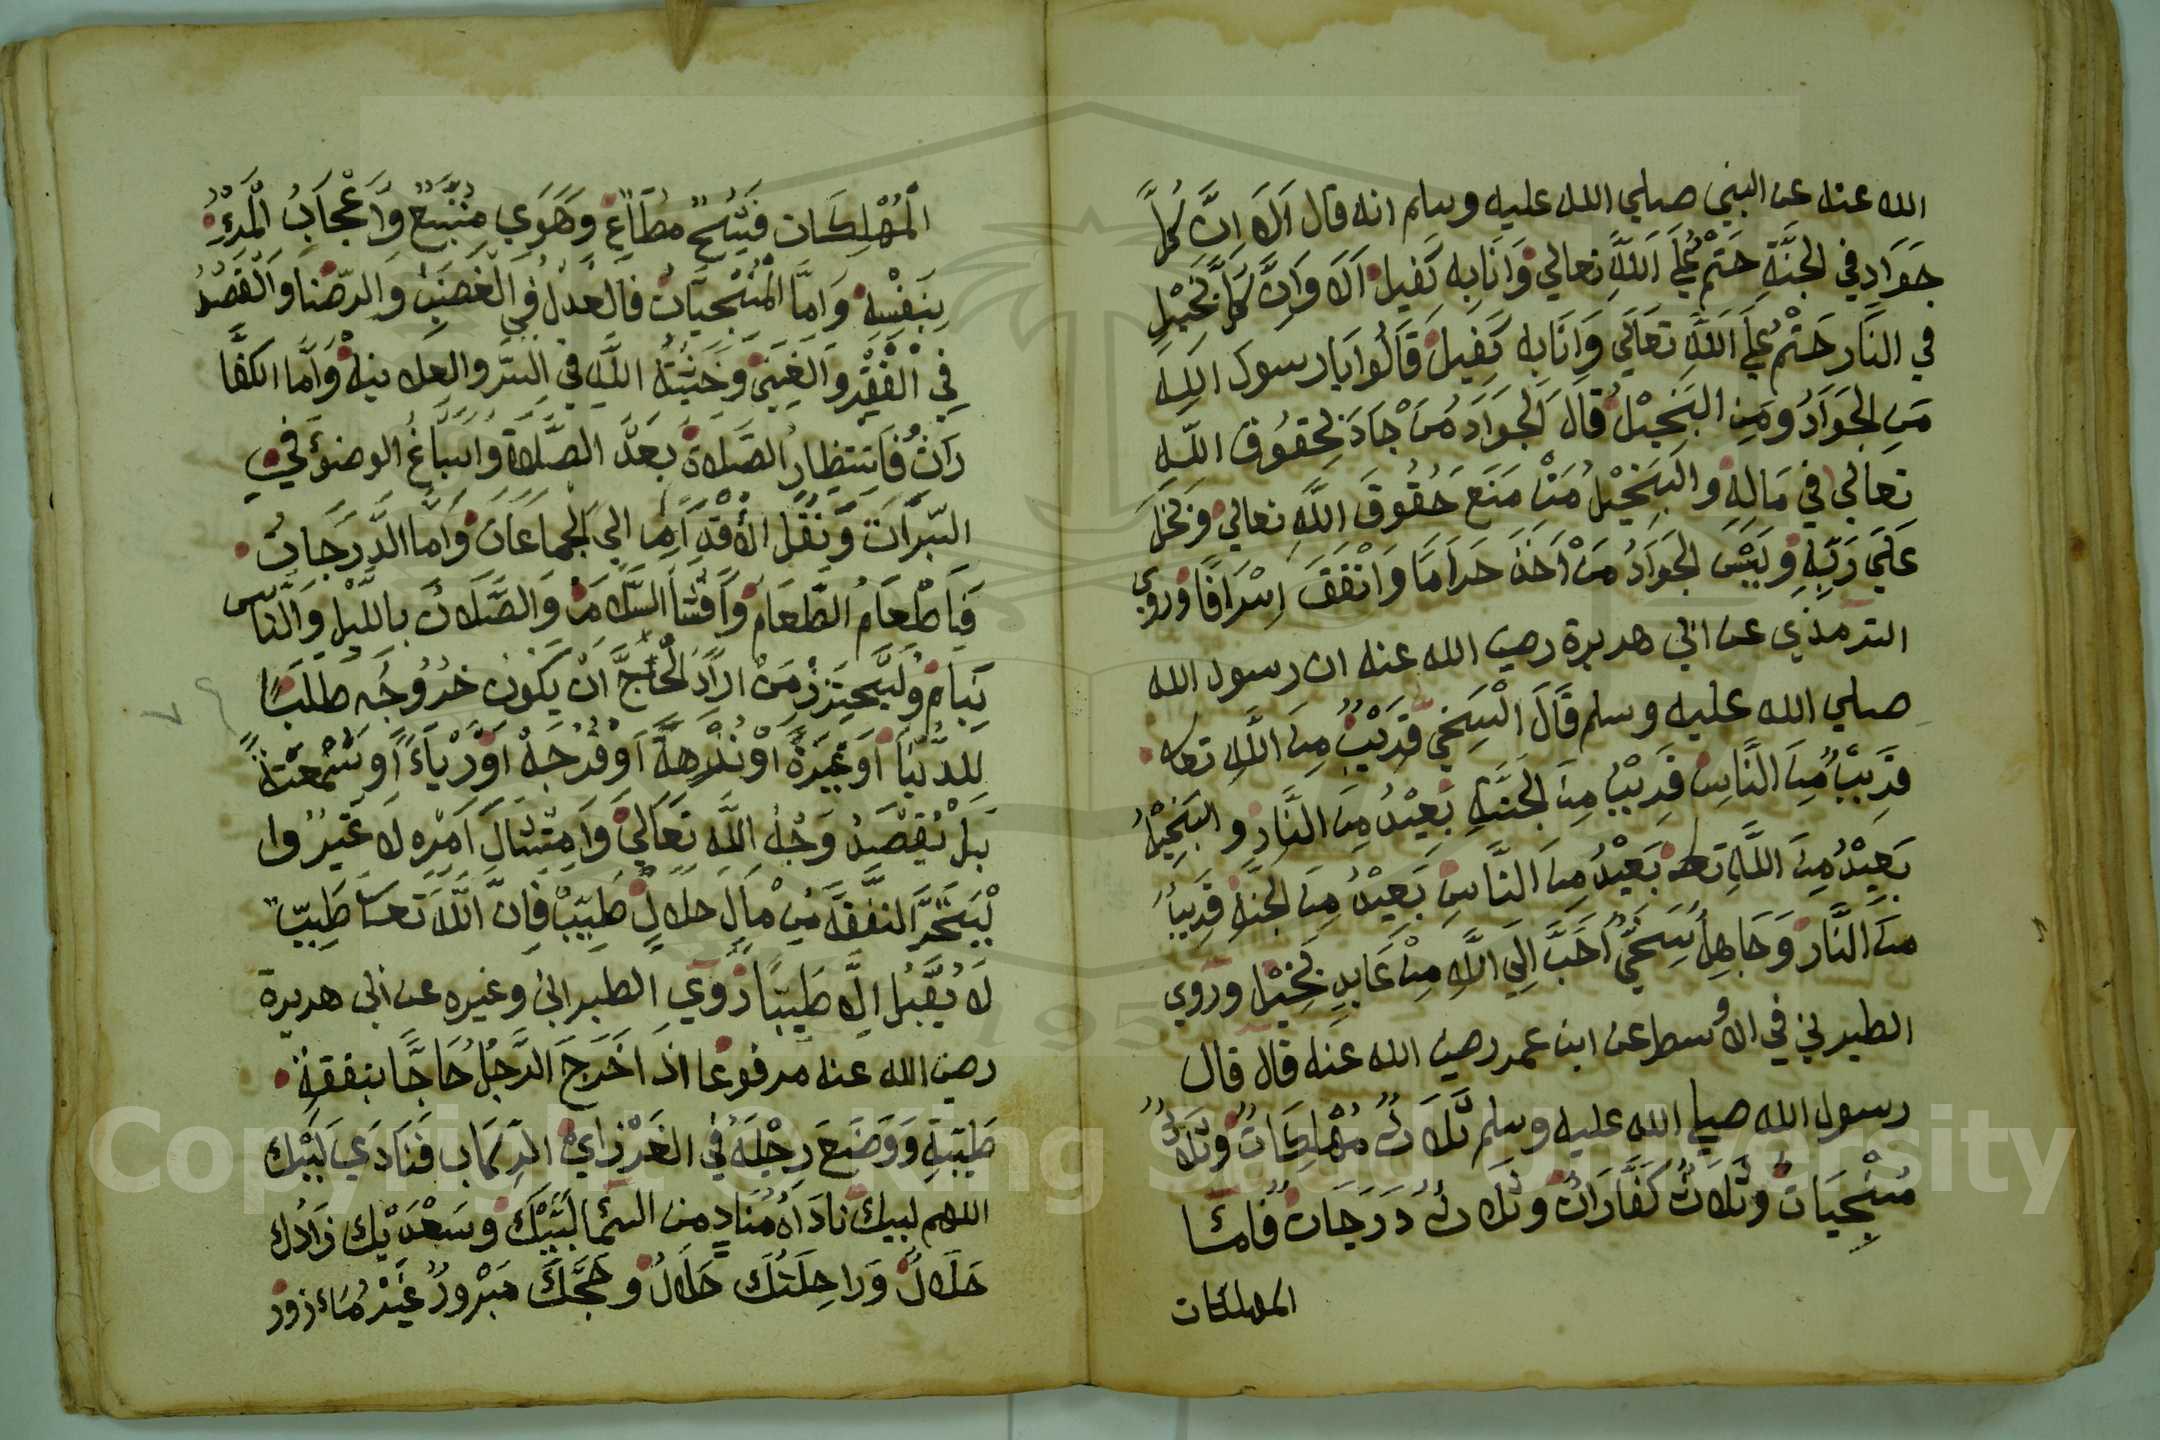 الله عنه عن النبي صلي الله عليه وسلم انه قال اَلَا اِنَّ كُلَّ
جَوَادٍ في الجنَّةِ حَتْمٌ عَلَي اللَّهِ تعالي وَاَنَا بِهِ كَفِيلٌ اَلَا وَاِنَّ كُلَّ بَخِيْلٍ
في النَّار حَتْمٌ عَلَي اللَّهِ تَعَالَي وَاَنَا بِهِ كَفِيلٌ قَالُوا يَا رسول الله
مَنِ الجَوَادُ ومَنِ البَخِيْلُ قَالَ الجَوَادُ مَنْ جَادَ بِحقُوق اللهِ
تعالي في مَالِهِ والبَخِيْلُ مَنْ مَنَعَ حُقُوقَ اللَّهِ تعالي وبَخِلَ
عَلَي رَبِّهِ وليْسَ الجَوَادُ مَنْ اَخَذَ حَرَامًا وَاَنْفَقَ اِسْرَافًا وروي
الترمذي عن ابي هريرة رضي الله عنه ان رسول الله
صلي الله عليه وسلم قَالَ السَّخِيُّ قَرِيْبٌ مِنَ اللَّهِ تعالي
قَرِيْبٌ مِنَ النَّاسِ قَرِيْبٌ مِنَ الجَنَّةِ بَعِيْدٌ مِنَ النَّارِ والبَخِيْلُ
بَعِيْدٌ مِنَ اللَّهِ تعالي بَعِيْدٌ مِنَ النَّاسِ بَعِيْدٌ مِنَ الجنةِ قَرِيبٌ
منَ النَّار وَجَاهِلٌ سَخِيٌّ اَحَبُّ اِلَي اللَّهِ مِنْ عَابِدٍ بَخِيْلٍ وروي
الطبرني في الاوسط عن ابن عمر رضي الله عنه قال قال
رسول الله صلي الله عليه وسلم ثَلَاثٌ مُهْلِكَاتٌ وثَلَاثٌ
مُنْجِيَاتٌ وثَلَاثٌ كَفَّارَاتٌ وثَلَاثٌ دَرَجَاتٌ فَامَّا
المهلكات
الْمُهْلِكَات فَشُحٌّ مُطَاعٌ وَهَوَي مُتَّبَعٌ وَاِعْجَابُ الْمَرْءِ
بِنَفْسِهِ وَاَمَّا الْمُنْجِيَاتُ فَالعَدْلُ في الْغَضَبِ والرِّضَا وَالْقَصْدُ
فِي الْفَقْرِ وَالْغِنَي وَخَشْيَةُ اللَّهِ فِي السِّرِّ والعلانية وَاَمَّا الكَفَّا
رَاتُ فَانتِظارُ الصَّلاة بَعْدَ الصَّلَاةِ وَاسْبَاغُ الوضوءِ في
السَّبَرَاتِ وَنَقْلُ الْاَقْدَامِ اليَ الجماعَاتِ وَاَمَّا الدَّرَجَاتُ
فَاِطْعَامُ الطَّعَامِ وَاَفْشَا السَّلَامِ وَالصَّلَاةُ باللَّيْلِ وَالنَّاس
نِيَامٌ وَلْيَحْتَرِزْ مَنْ ارَادَ الْحَاجَّ اَنْ يَكُونَ خُرُوجُه طَلَبًا
لِلدُّنْيَا اَوْ غَيْرَةً اَوْ نُزْهَةً اَوْ فُرْجَةً اَوْ رِيَاءً اَو سُمْعَةً
بَلْ يُقْصِدُ وَجْهَ اللَّهِ تَعَالَيَ وَاِمْتِثَالَ اَمْرِهِ لَا غَيْرُ وا
لْيَتَحَرَّ النَّفَقَةَ مِنْ مَالٍ حَلَالٍ طَيِّبٍ فَاِنَّ اللَّهَ تعالي طَيِّبٌ
لَا يُقْبَلُ اِلَّا طَيِّبًا رَوَي الطبراني وغيره عن ابي هريرة
رضي الله عنه مرفوعا اذَا خَرَجَ الرَّجُلُ حَاجًّا بنفقةٍ
طَيِّبَةٍ وَوَضَعَ رِجْلَهُ في الغَرْزِ اي الرِكَاب فَنَادَي لَبَّيْك
اللهم لبيك نَادَاهُ مُنَادٍ من السَّمَا لَبَّيْكَ وسَعْدَيْك زَادُك
حَلَالٌ وَراحِلَتُكَ حَلَالٌ وحَجُّكَ مَبْرورٌ غَيْرُ مَأزورٍ
Copyright © King Saud University
195